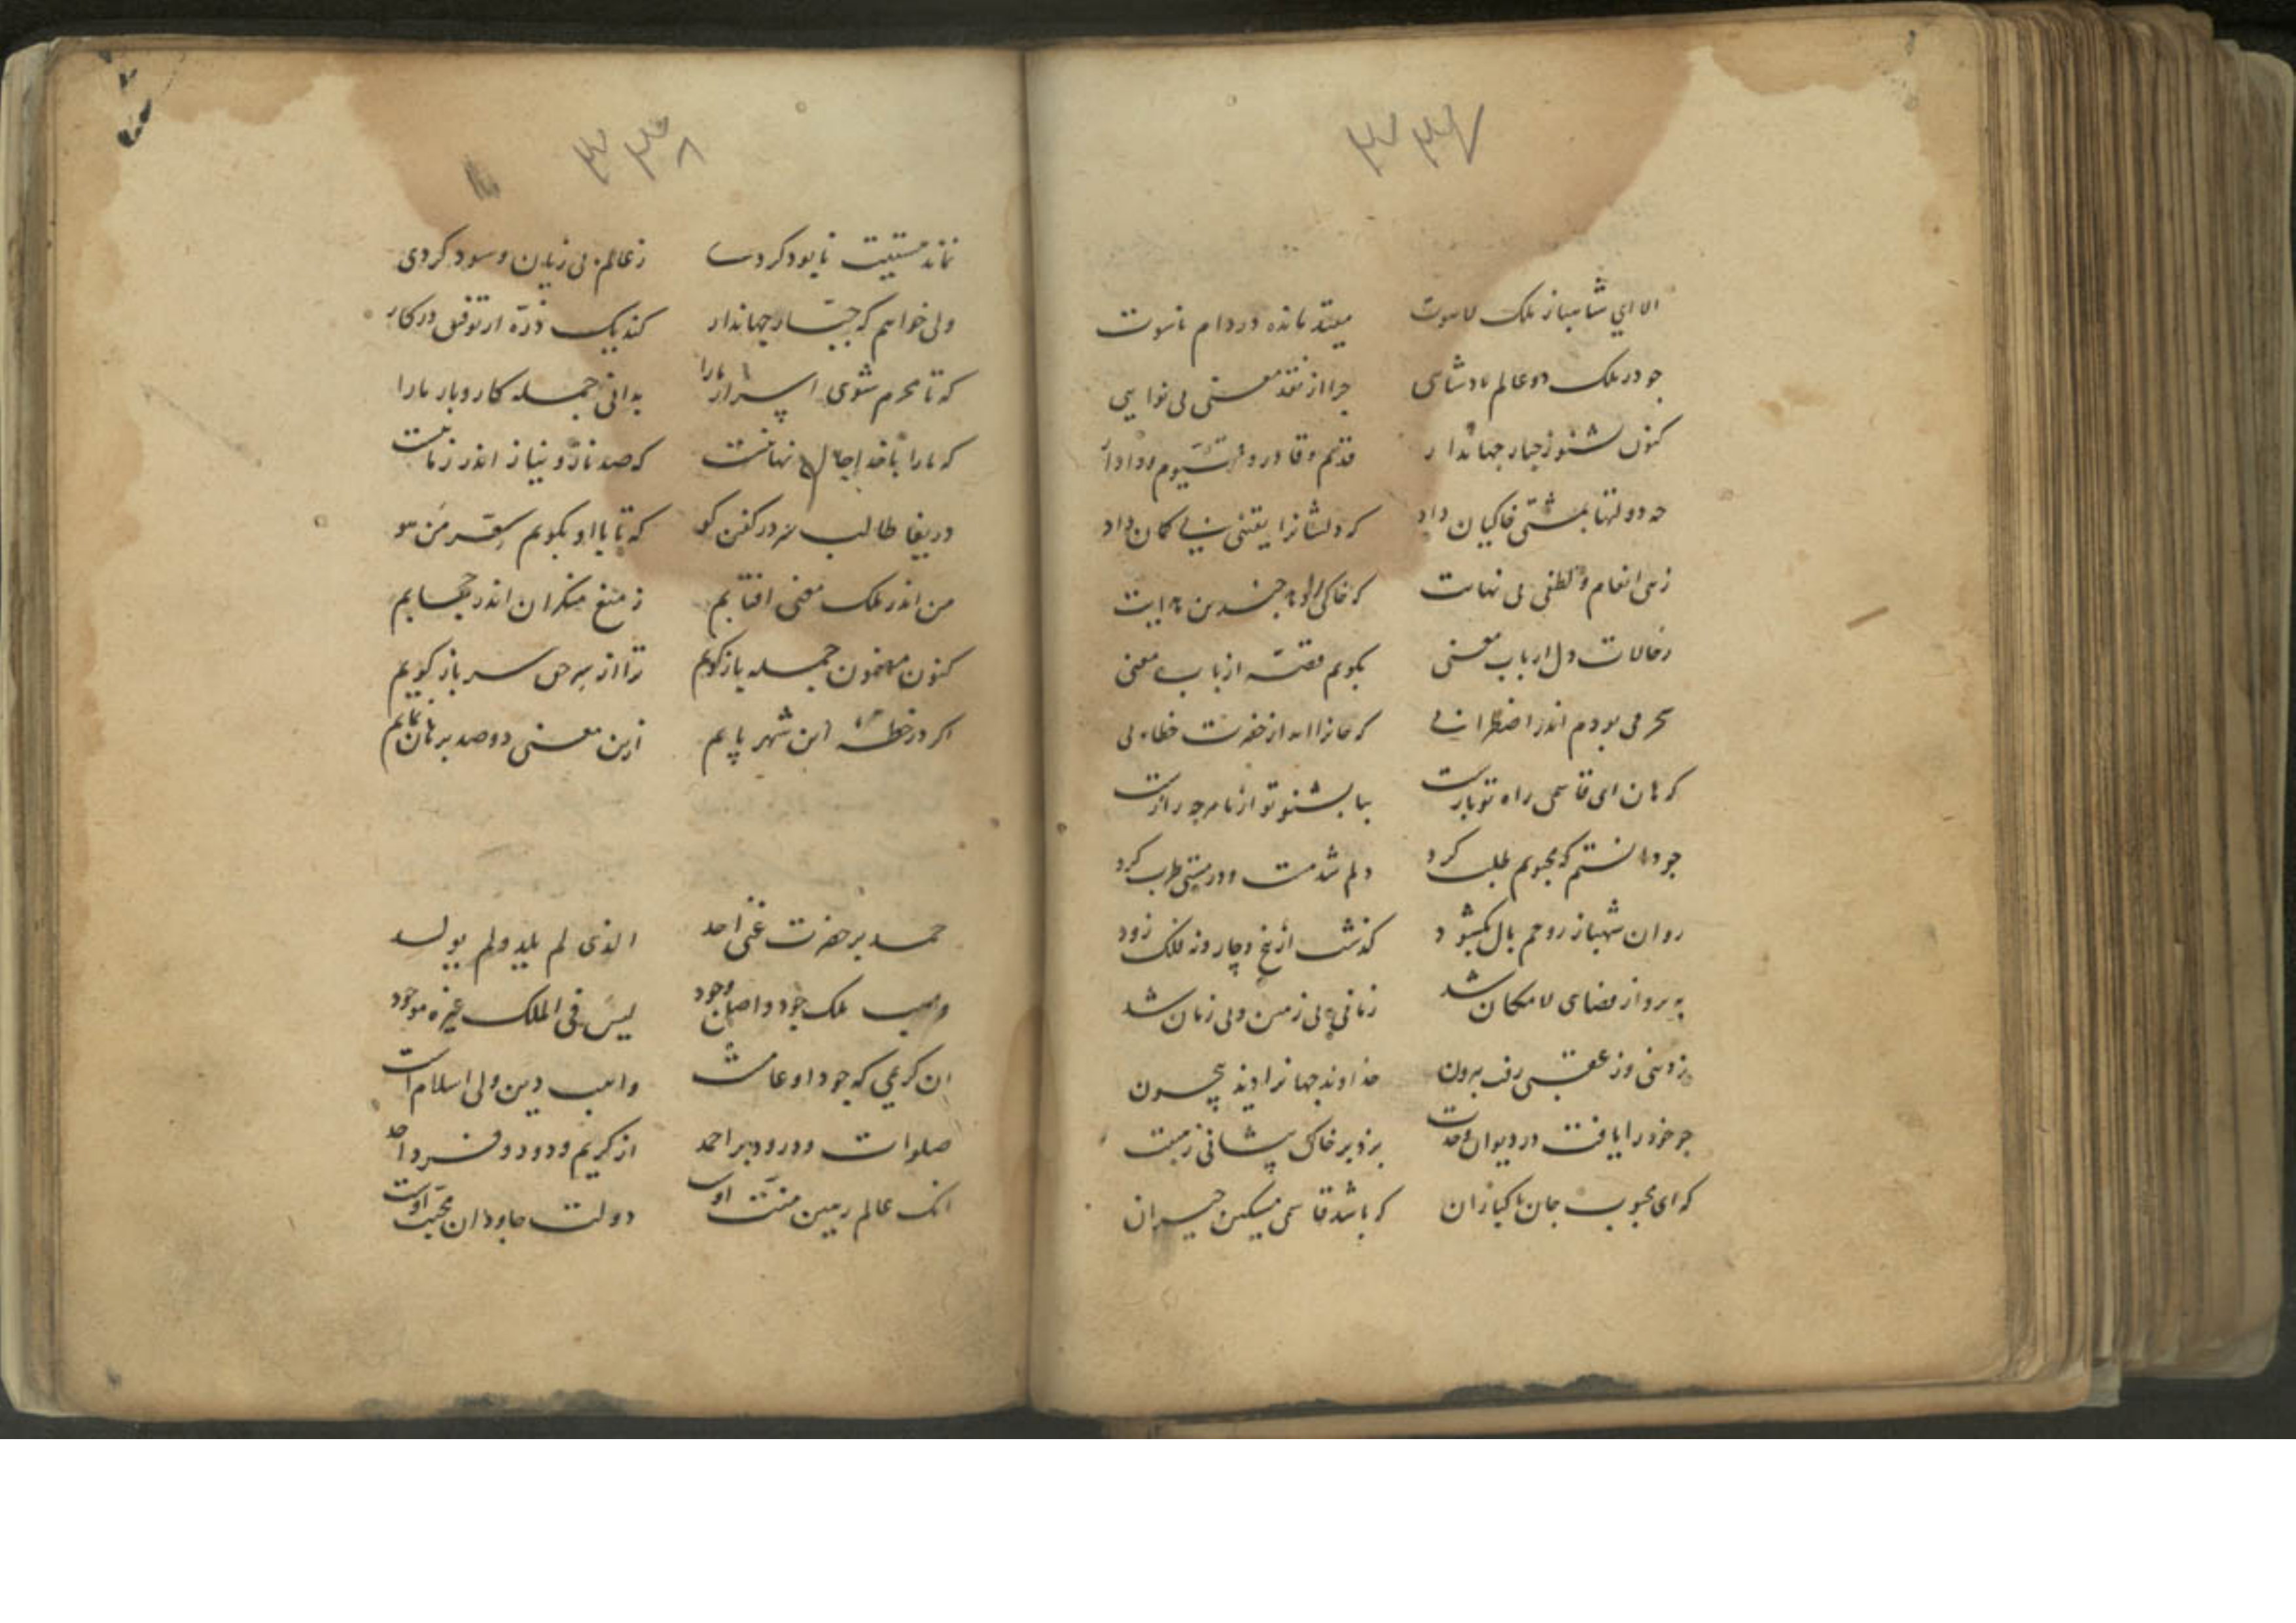 ۳۳۷
الا ای شاهباز ملک لاهوت مقید مانده در دام ناسوت
جو در ملک دو عالم بادشاهی جرا از نقد معنی بی نوایی
کنون بشنو ز جبار جهاندار قدیم و قادر و قیوم و دادار
جه دولتها بمشتی خاکیان داد که دلشانرا یقینی بی کمان داد
زهی انعام و لطفی بی نهایت که خاکی را دهد جندین هدایت
ز حالات دل ارباب معنی بکویم قصه از باب معنی
سحر می بودم اندر اضطرابی که جانرا آمد از حضرت خطابی
که هان ای قاسمی راه تو بازست بیا بشنو تو از ما هرجه رازست
جو دانستم که محبوبم طلب کرد دلم شد مست و در مستی طرب کرد
روان شهباز روحم بال بکشود کذشت از پنج و چار و نه فلک زود
به پرواز فضای لامکان شد زمانی بی زمین و بی زمان شد
ز دنیی وز عقبی رفت بیرون خداوند جهانرا دید بیچون
جو خود را یافت در دیوان وحدت بزد بر خاک پیشانی ز هیبت
که ای محبوب جان پاکبازان که باشد قاسمی مسکین حیران
۳۳۸
نماند هستیت نابود کردی ز عالم بی زیان و سود کردی
ولی خواهم که جبار جهاندار کند یک ذره از توفیق در کار
که تا محرم شوی اسرار ما را بدانی جمله کار و بار ما را
که ما را با خدا حال نهانست که صد ناز و نیاز اندر زمانست
دریغا طالب در کفن کو که تا با او بکویم سر من هو
من اندر ملک معنی افتابم ز منع منکران اندر حجابم
کنون مضمون جمله باز کویم ترا از سر حق سر باز کویم
اکر در خطه این شهر پایم ازین معنی دو صد برهان نمایم
حمد بر حضرت غنی احد الذی لم یلد و لم یولد
واهب ملک جود و اصل وجود لیس فی الملک غیره موجود
ان کریمی که جود او عامست واهب دین ولی اسلام است
صلوات و درود بر احمد از کریم و ودود و فرد احد
انک عالم رهین منت اوست دولت جاودان محبت اوست